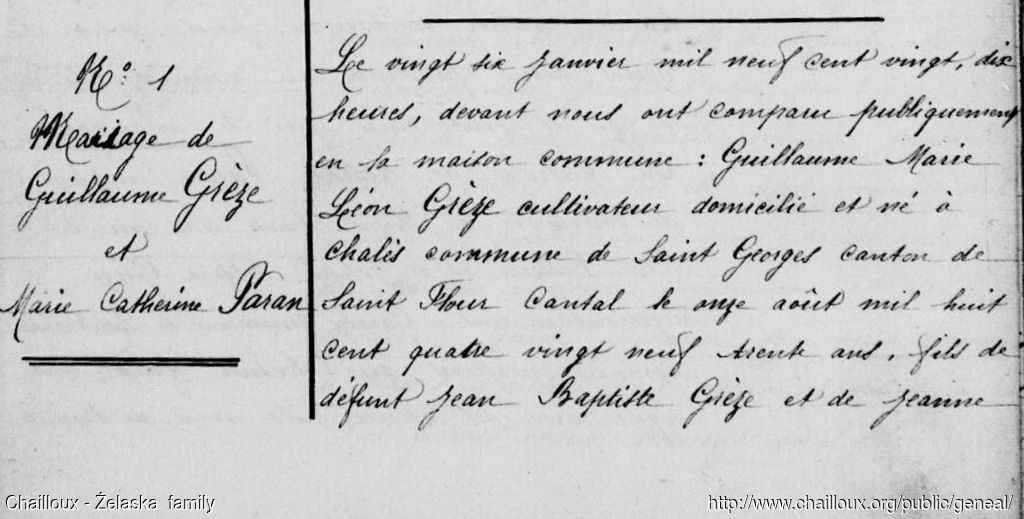 N° 1
Mariage de
Guillaume Grèze
et
Marie Catherine Paran
Le vingt six janvier mil neuf cent vingt, dix
heures, devant nous ont comparu publiquement
en la maison commune : Guillaume Marie
Léon Grèze cultivateur domicilié et né à
Chalès commune de Saint Georges canton de
Saint Flour Cantal le onze août mil huit
cent quatre vingt neuf trente ans, fils de
défunt Jean Baptiste Grèze et de Jeanne
Chailloux - Żelaska family
http://www.chailloux.org/public/geneal/